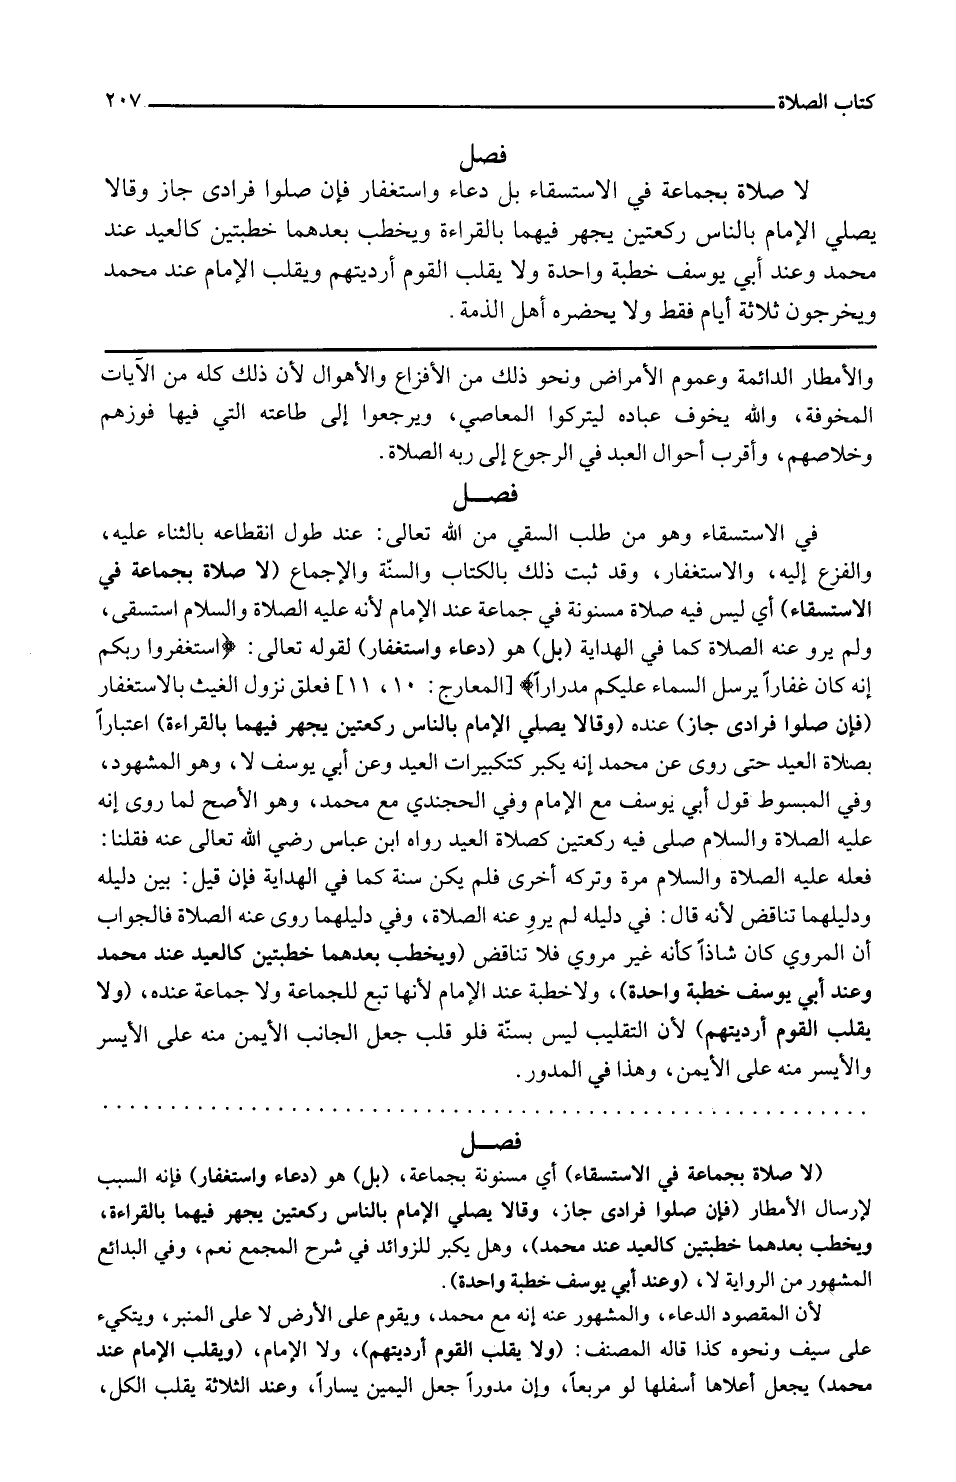 كتاب الصلاة ٢٠٧
فصل
لا صلاة بجماعة في الاستسقاء بل دعاء واستغفار فإن صلوا فرادى جاز وقالا
يصلي الإمام بالناس ركعتين يجهر فيهما بالقراءة ويخطب بعدهما خطبتين كالعيد عند
محمد وعند أبي يوسف خطبة واحدة ولا يقلب القوم أرديتهم ويقلب الإمام عند محمد
ويخرجون ثلاثة أيام فقط ولا يحضره أهل الذمة .
والأمطار الدائمة وعموم الأمراض ونحو ذلك من الأفزاع والأهوال لأن ذلك كله من الآيات
المخوفة، والله يخوف عباده ليتركوا المعاصي، ويرجعوا إلى طاعته التي فيها فوزهم
وخلاصهم، وأقرب أحوال العبد في الرجوع إلى ربه الصلاة.
فصـــل
في الاستسقاء وهو من طلب السقي من الله تعالى: عند طول انقطاعه بالثناء عليه،
والفزع إليه، والاستغفار، وقد ثبت ذلك بالكتاب والسنّة والإجماع (لا صلاة بجماعة في
الاستسقاء) أي ليس فيه صلاة مسنونة في جماعة عند الإمام لأنه عليه الصلاة والسلام استسقى،
ولم يرو عنه الصلاة كما في الهداية (بل) هو (دعاء واستغفار) لقوله تعالى: ﴿استغفروا ربكم
إنه كان غفاراً يرسل السماء عليكم مدراراً﴾ [المعارج: ١٠، ١١] فعلق نزول الغيث بالاستغفار
(فإن صلوا فرادى جاز) عنده (وقالا يصلي الإمام بالناس ركعتين يجهر فيهما بالقراءة) اعتباراً
بصلاة العيد حتى روى عن محمد إنه يكبر كتكبيرات العيد وعن أبي يوسف لا، وهو المشهود،
وفي المبسوط قول أبي يوسف مع الإمام وفي الحجندي مع محمد، وهو الأصح لما روى إنه
عليه الصلاة والسلام صلى فيه ركعتين كصلاة العيد رواه ابن عباس رضي الله تعالى عنه فقلنا:
فعله عليه الصلاة والسلام مرة وتركه أخرى فلم يكن سنة كما في الهداية فإن قيل: بين دليله
ودليلهما تناقض لأنه قال: في دليله لم يروِ عنه الصلاة، وفي دليلهما روى عنه الصلاة فالجواب
أن المروي كان شاذاً كأنه غير مروي فلا تناقض (ويخطب بعدهما خطبتين كالعيد عند محمد
وعند أبي يوسف خطبة واحدة)، ولاخطبة عند الإمام لأنها تبع للجماعة ولا جماعة عنده، (ولا
يقلب القوم أرديتهم) لأن التقليب ليس بسنّة فلو قلب جعل الجانب الأيمن منه على الأيسر
والأيسر منه على الأيمن، وهذا في المدور.
فصـــل
(لا صلاة بجماعة في الاستسقاء) أي مسنونة بجماعة، (بل) هو (دعاء واستغفار) فإنه السبب
لإرسال الأمطار (فإن صلوا فرادى جاز، وقالا يصلي الإمام بالناس ركعتين يجهر فيهما بالقراءة،
ويخطب بعدهما خطبتين كالعيد عند محمد)، وهل يكبر للزوائد في شرح المجمع نعم، وفي البدائع
المشهور من الرواية لا، (وعند أبي يوسف خطبة واحدة).
لأن المقصود الدعاء، والمشهور عنه إنه مع محمد، ويقوم على الأرض لا على المنبر، ويتكيء
على سيف ونحوه كذا قاله المصنف: (ولا يقلب القوم أرديتهم)، ولا الإمام، (ويقلب الإمام عند
محمد) يجعل أعلاها أسفلها لو مربعاً، وإن مدوراً جعل اليمين يساراً، وعند الثلاثة يقلب الكل،